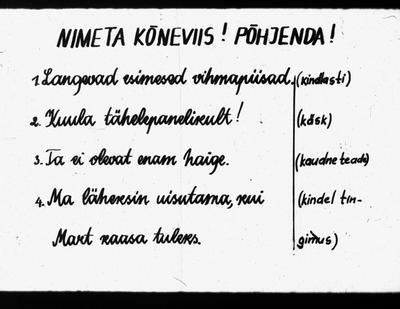 NIMETA KÕNEVIIS! PÕHJENDA!
1. Langevad esimesed vihmapiisad. (kindlasti)
2. Kuula tähelepanelikult! (käsk)
3. Ta ei olevat enam haige. (kaudne teade)
4. Ma läheksin uisutama, kui (kindel tin-
Mart kaasa tuleks. gimus)